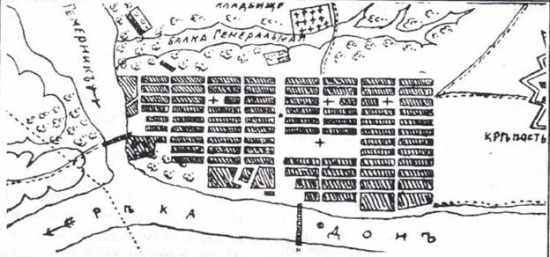 КЛАДБИЩЕ
БАЛКА ГЕНЕРАЛЬНАЯ
ТЕМЕРНИКЪ Р.
КРѢПОСТЬ
РѢКА ДОНЪ